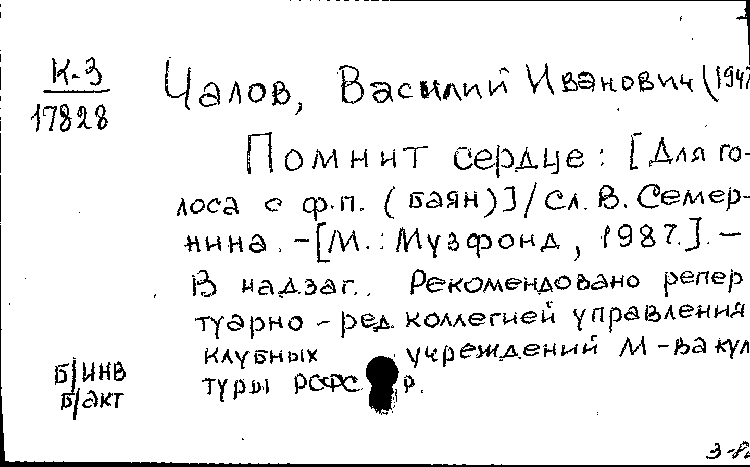 К-3
17828
Чалов, Василий Иванович (194
Помнит сердце: [Для го-
лоса с ф.п. (баян)] / Сл. В. Семер-
нина. - [М.: Музфонд, 1987.]. -
В надзаг.. Рекомендовано репер
туарно-ред. коллегией управления
клубных учреждений М-ва кул
туры РСФС р.
Б/инв
б/акт